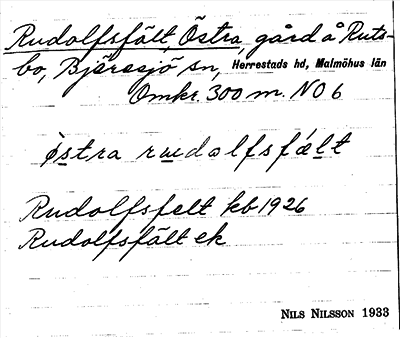 Rudolfsfält, Östra, gård å Ruts-
bo, Bjäresjö sn, Herrestads hd, Malmöhus län
Omkr. 300 m. NO 6
östra rudolfsfælt
Rudolfsfelt kb 1926
Rudolfsfält ek
NILS NILSSON 1933